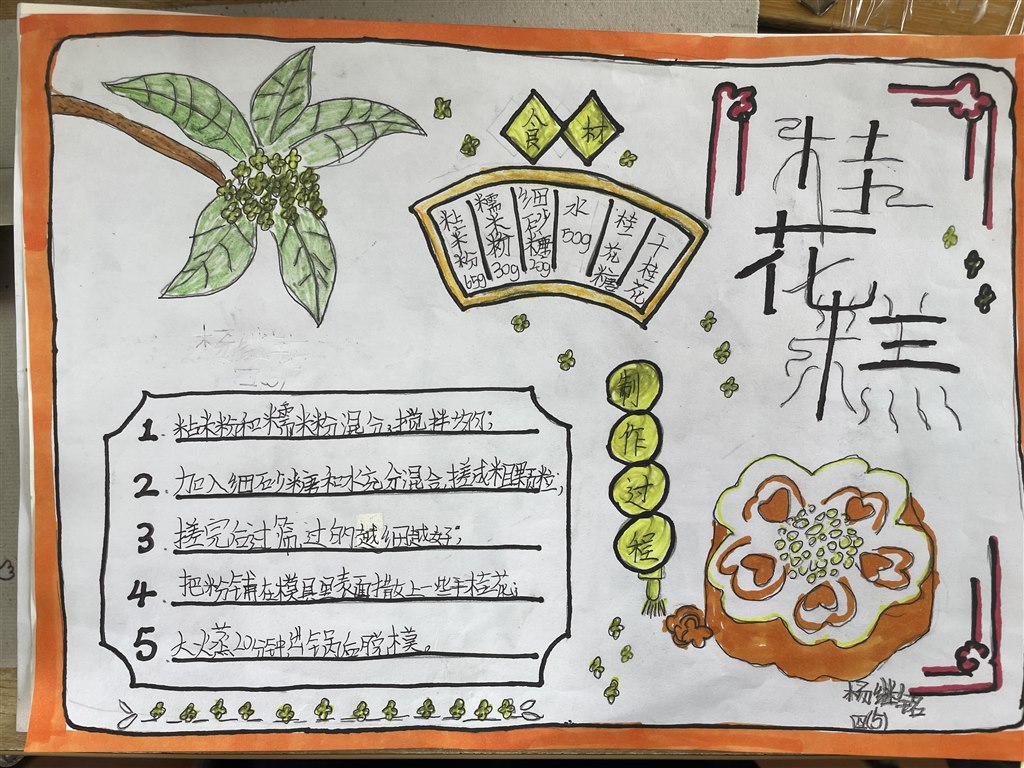 桂花糕
食材
粘米粉65g
糯米粉30g
细砂糖25g
水50g
桂花糖
干桂花
制作过程
1. 粘米粉和糯米粉混合,搅拌均匀;
2. 加入细砂糖和水充分混合,搓成粗颗粒;
3 搓完后过筛,过的越细越好;
4. 把粉铺在模具里表面撒上一些干桂花;
5 大火蒸20分钟出锅后脱模。
杨继铭
四(5)